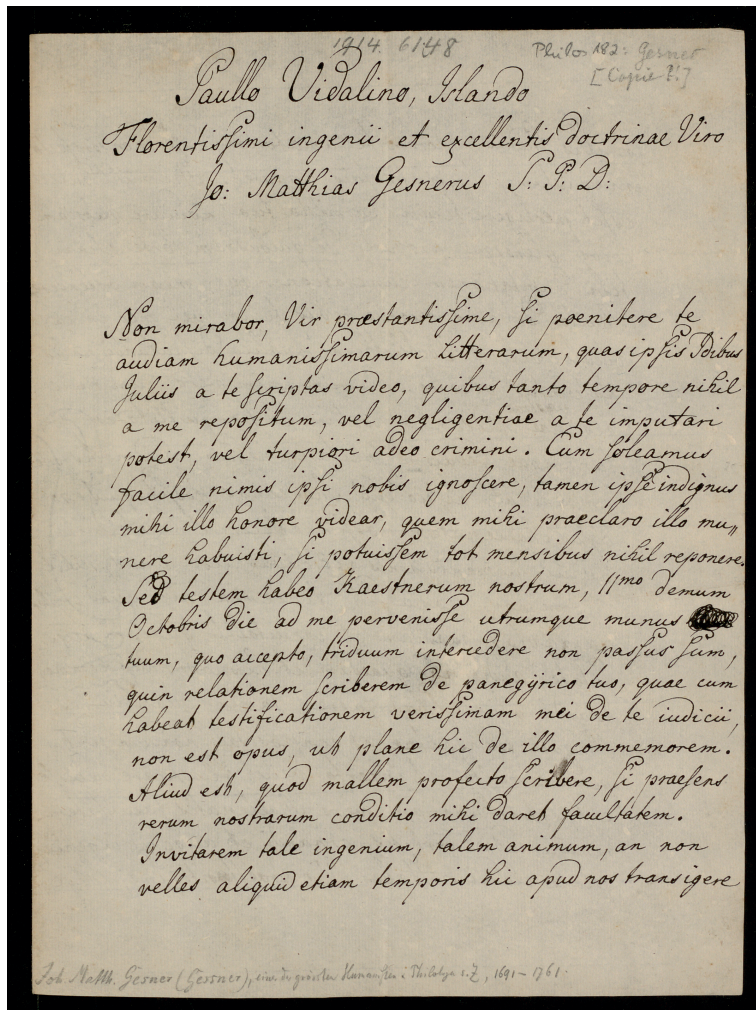 1914. 6148
Philos 182: Gesner
[Copie ?!]
Paullo Vidalino, Islando
Florentissimi ingenii et excellentis doctrinae Viro
Jo: Matthias Gesnerus S: P: D:
Non mirabor, Vir præstantissime, si poenitere te
audiam humanissimarum litterarum, quas ipsis Idibus
Juliis a te scriptas video, quibus tanto tempore nihil
a me repositum, vel negligentiae a te imputari
potest, vel turpiori adeo crimini. Cum soleamus
facile nimis ipsi nobis ignoscere, tamen ipse indignus
mihi illo honore videar, quem mihi praeclaro illo mu„
nere habuisti, si potuissem tot mensibus nihil reponere.
Sed testem habeo Kaestnerum nostrum, 11mo demum
Octobris die ad me pervenisse utrumque munus
tuum, quo accepto, triduum intercedere non passus sum,
quin relationem scriberem de panegÿrico tuo, quae cum
habeat testificationem verissimam mei de te iudicii,
non est opus, ut plane hic de illo commemorem.
Aliud est, quod mallem profecto scribere, si praesens
rerum nostrarum conditio mihi daret facultatem.
Invitarem tale ingenium, talem animum, an non
velles aliquid etiam temporis hic apud nos transigere
Joh. Matth. Gesner (Gessner), eine der grössten Humanisten i. Philologe s. Z, 1691-1761.